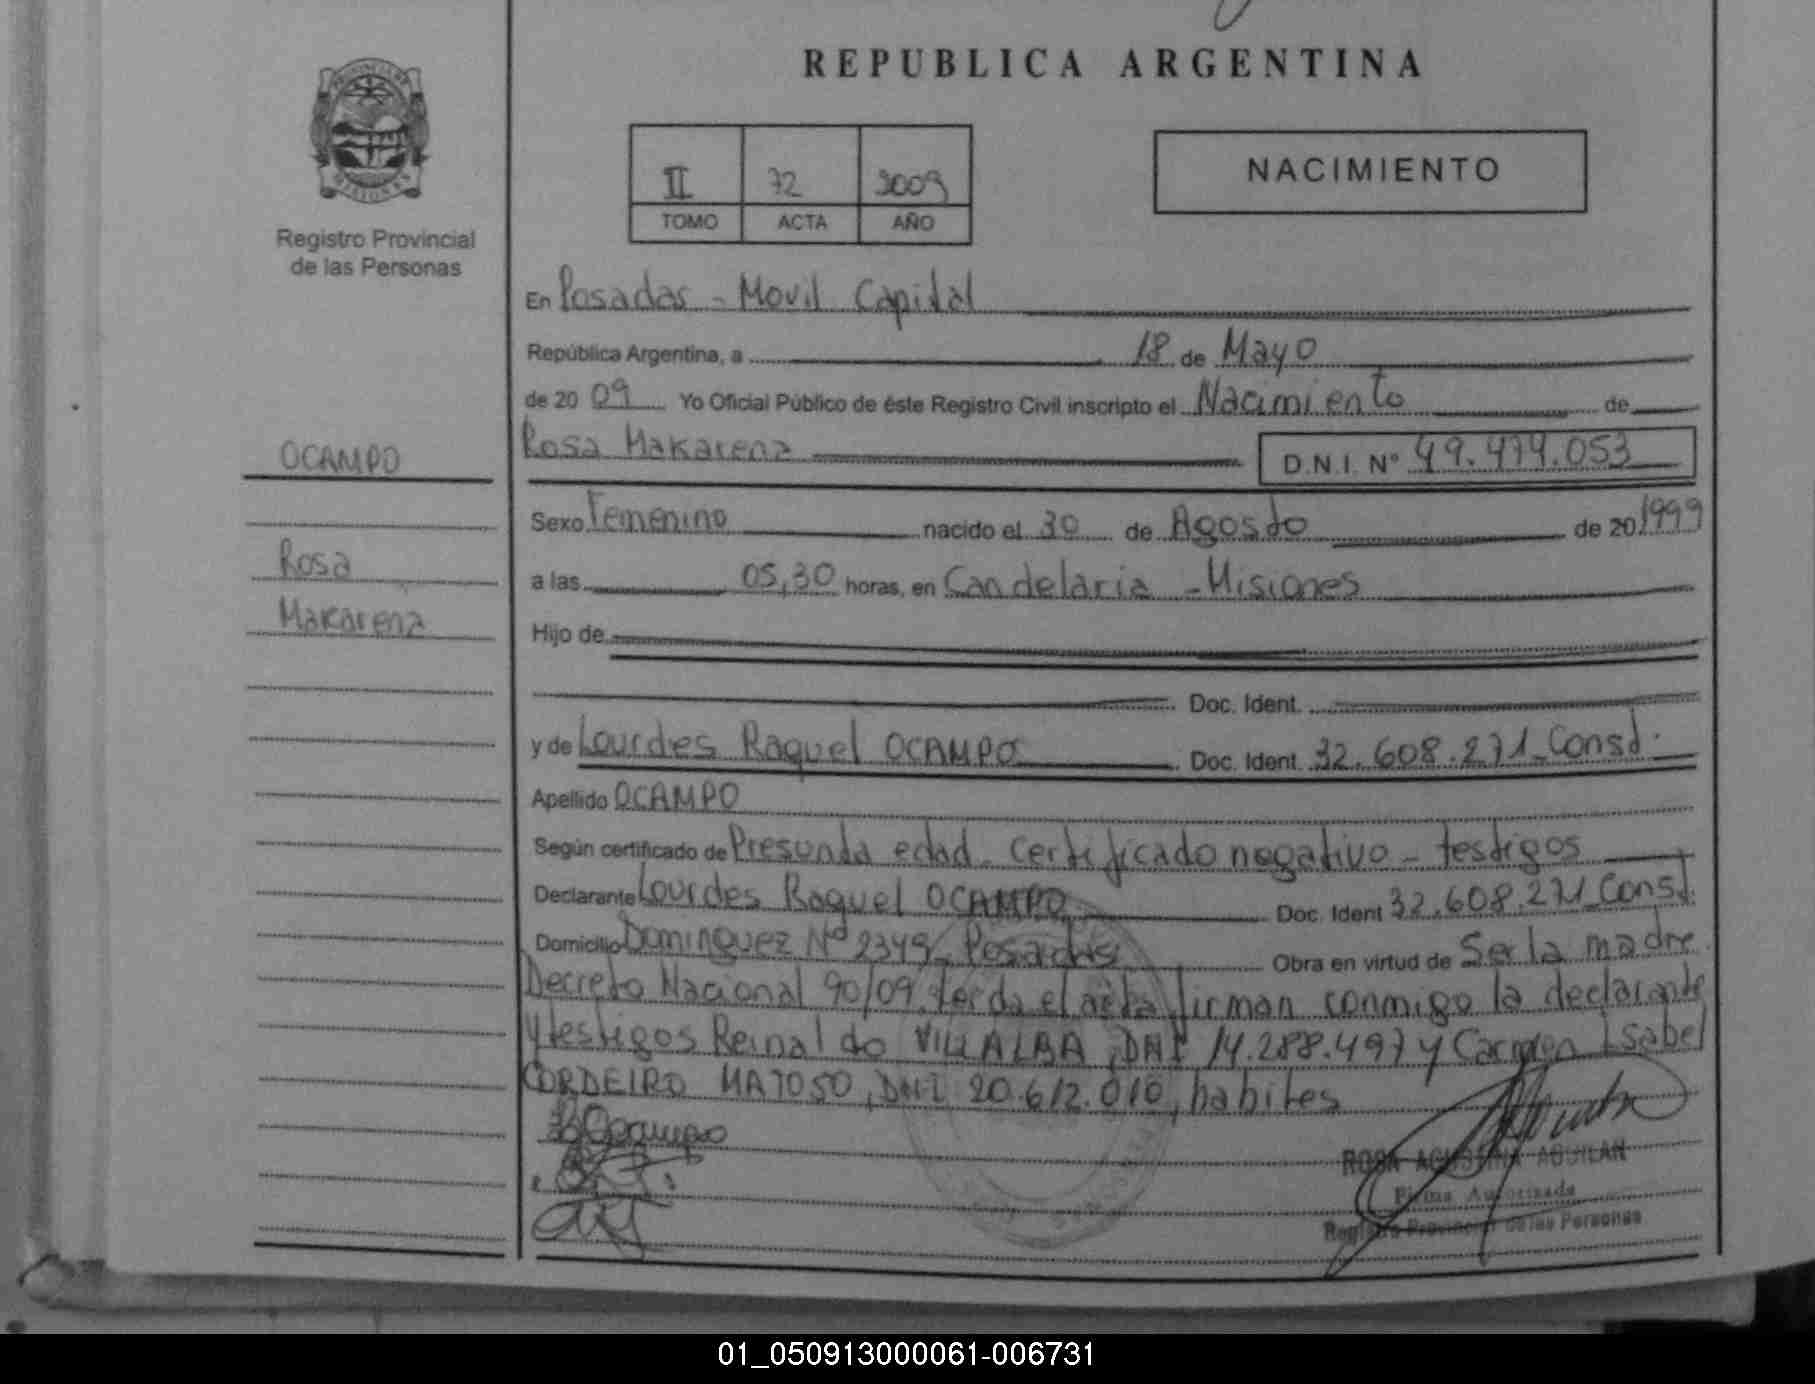 REPUBLICA ARGENTINA
PROVINCIA DE MISIONES
Registro Provincial
de las Personas
II 72 2009
TOMO ACTA AÑO
NACIMIENTO
En Posadas - Movil Capital
República Argentina, a 18 de Mayo
de 20 09 Yo Oficial Público de éste Registro Civil inscripto el Nacimiento de
Rosa Makarena D.N.I. Nº 49.474.053
OCAMPO
Rosa
Makarena
Sexo Femenino nacido el 30 de Agosto de 20 1999
a las 05,30 horas, en Candelaria - Misiones
Hijo de
Doc. Ident.
y de Lourdes Raquel OCAMPO Doc. Ident. 32.608.271 Const.
Apellido OCAMPO
Según certificado de Presunta edad - certificado negativo - testigos
Declarante Lourdes Raquel OCAMPO Doc. Ident 32.608.271 Const.
Domicilio Dominguez Nº 2349 - Posadas Obra en virtud de Ser la madre.
Decreto Nacional 90/09, el acta, firman conmigo la declarante
y testigos Reinaldo VILLALBA, DNI 14.288.497 y Carmen Isabel
CORDEIRO MATOSO, DNI 20.612.010, habiles
Ocampo
ROSA AGUSTINA AGUILAR
Firma Autorizada
Registro Provincial de las Personas
01_050913000061-006731